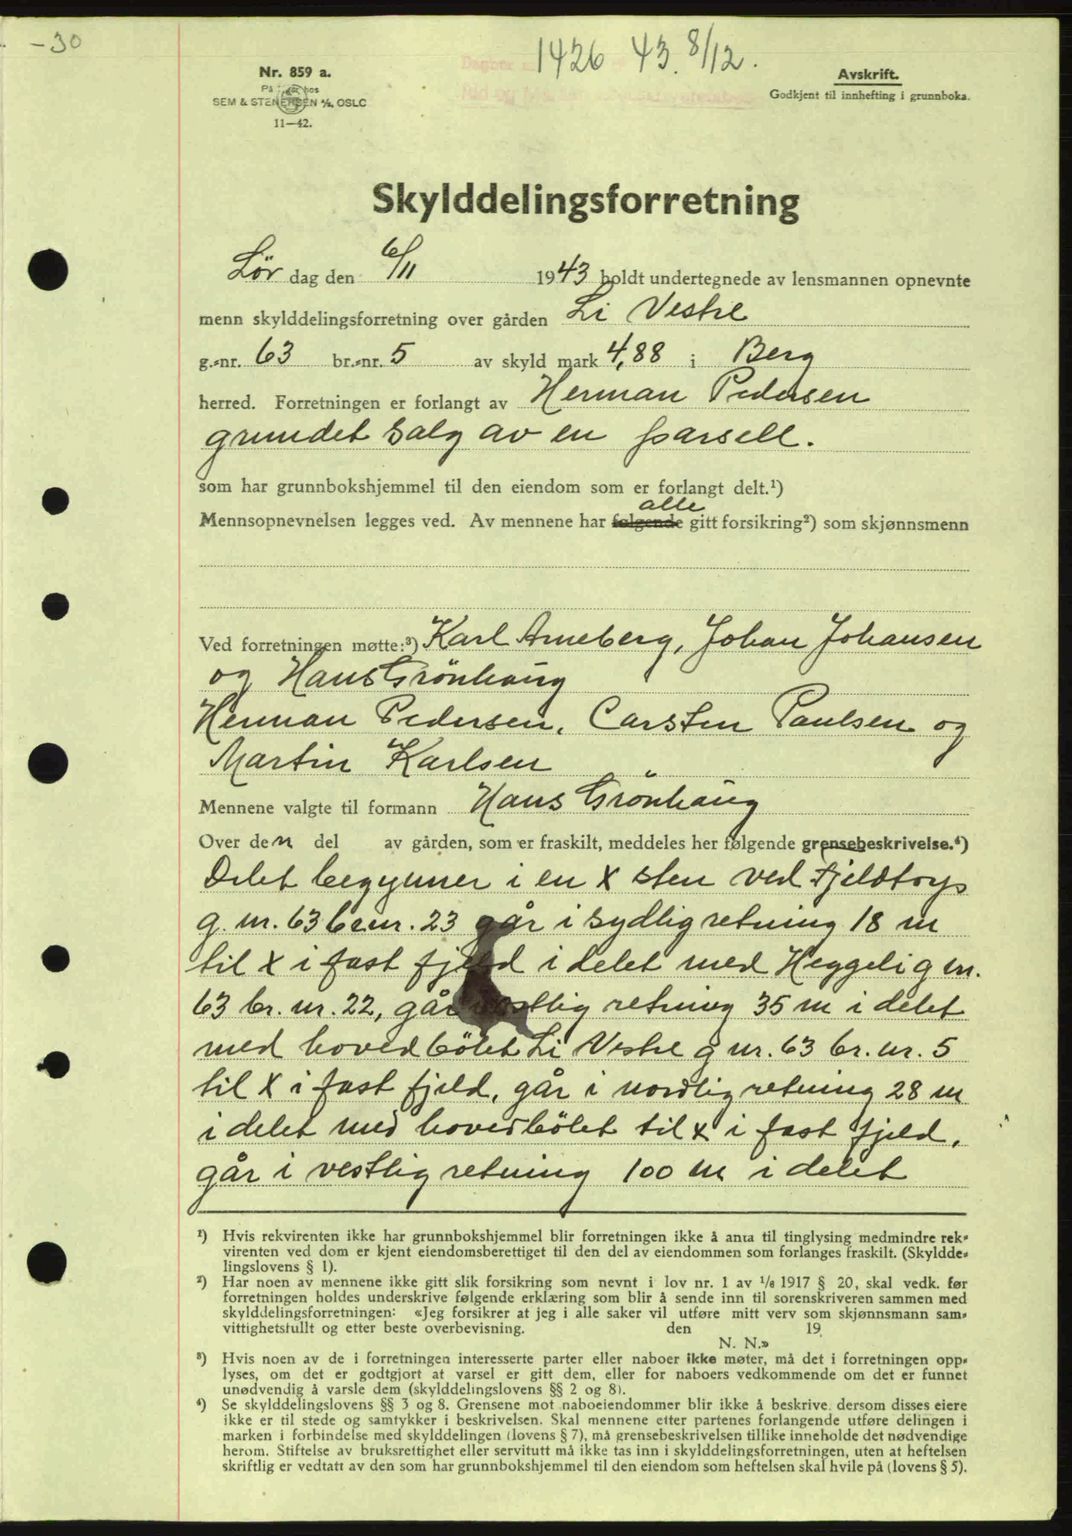 -30
1426 43. 8/12.
Nr. 859 a.
På lager hos
SEM & STENERSEN A/S, OSLO
11—42.
Avskrift.
Godkjent til innhefting i grunnboka.
Skylddelingsforretning
Lør dag den 6/11 1943 holdt undertegnede av lensmannen opnevnte
menn skylddelingsforretning over gården Li Vestre
g.-nr. 63 br.-nr. 5 av skyld mark 4,88 i Berg
herred. Forretningen er forlangt av Herman Pedersen
grundet salg av en parsell.
som har grunnbokshjemmel til den eiendom som er forlangt delt.¹)
alle
Mennsopnevnelsen legges ved. Av mennene har følgende gitt forsikring²) som skjønnsmenn
Ved forretningen møtte:³) Karl Arneberg, Johan Johansen
og Hans Grönhaug
Herman Pedersen, Carsten Paulsen og
Martin Karlsen
Mennene valgte til formann Hans Grönhaug
Over den del av gården, som er fraskilt, meddeles her følgende grensebeskrivelse.⁴)
Delet begynner i en X sten ved Fjeldtorp
g. nr. 63 br. nr. 23 går i sydlig retning 18 m
til X i fast fjeld i delet med Heggeli g nr.
63 br. nr. 22, går vestlig retning 35 m i delet
med hovedbölet Li Vestre g nr. 63 br. nr. 5
til X i fast fjeld, går i nordlig retning 28 m
i delet med hovedbölet til X i fast fjeld,
går i vestlig retning 100 m i delet
¹) Hvis rekvirenten ikke har grunnbokshjemmel blir forretningen ikke å anta til tinglysing medmindre rek-
virenten ved dom er kjent eiendomsberettiget til den del av eiendommen som forlanges fraskilt. (Skyldde-
lingslovens § 1).
²) Har noen av mennene ikke gitt slik forsikring som nevnt i lov nr. 1 av 1/6 1917 § 20, skal vedk. før
forretningen holdes underskrive følgende erklæring som blir å sende inn til sorenskriveren sammen med
skylddelingsforretningen: «Jeg forsikrer at jeg i alle saker vil utføre mitt verv som skjønnsmann sam-
vittighetsfullt og etter beste overbevisning. den 19
N. N.»
³) Hvis noen av de i forretningen interesserte parter eller naboer ikke møter, må det i forretningen opp-
lyses, om det er godtgjort at varsel er gitt dem, eller for naboers vedkommende om det er funnet
unødvendig å varsle dem (skylddelingslovens §§ 2 og 8).
⁴) Se skylddelingslovens §§ 3 og 8. Grensene mot naboeiendommer blir ikke å beskrive, dersom disses eiere
ikke er til stede og samtykker i beskrivelsen. Skal mennene etter partenes forlangende utføre delingen i
marken i forbindelse med skylddelingen (lovens § 7), må grensebeskrivelsen tillike inneholde det nødvendige
herom. Stiftelse av bruksrettighet eller servitutt må ikke tas inn i skylddelingsforretningen, uten at heftelsen
skriftlig er vedtatt av den som har grunnbokshjemmel til den eiendom som heftelsen skal hvile på (lovens § 5).